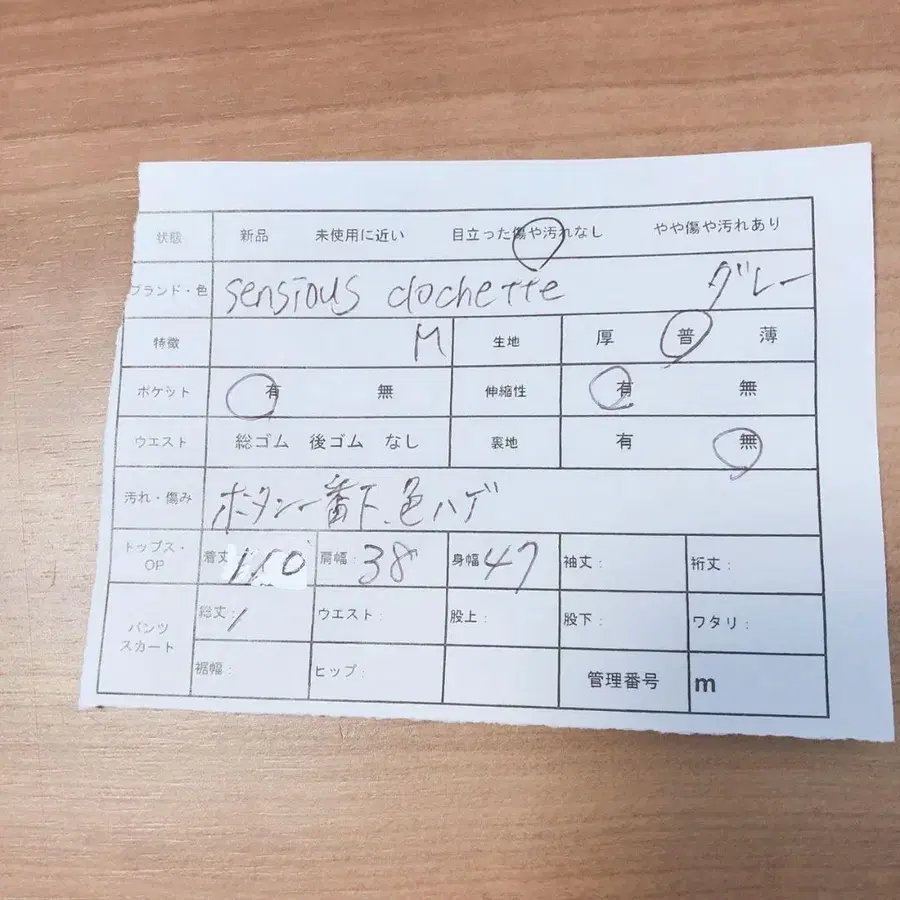 状態 新品 未使用に近い 目立った傷や汚れなし やや傷や汚れあり
ブランド・色 sensious clochette グレー
特徴 M 生地 厚 普 薄
ポケット 有 無 伸縮性 有 無
ウエスト 総ゴム 後ゴム なし 裏地 有 無
汚れ・傷み ボタン一番下、色ハゲ
トップス・OP 着丈 110 肩幅: 38 身幅 47 袖丈: 裄丈:
パンツ スカート 総丈: ウエスト: 股上: 股下: ワタリ:
裾幅: ヒップ: 管理番号 m